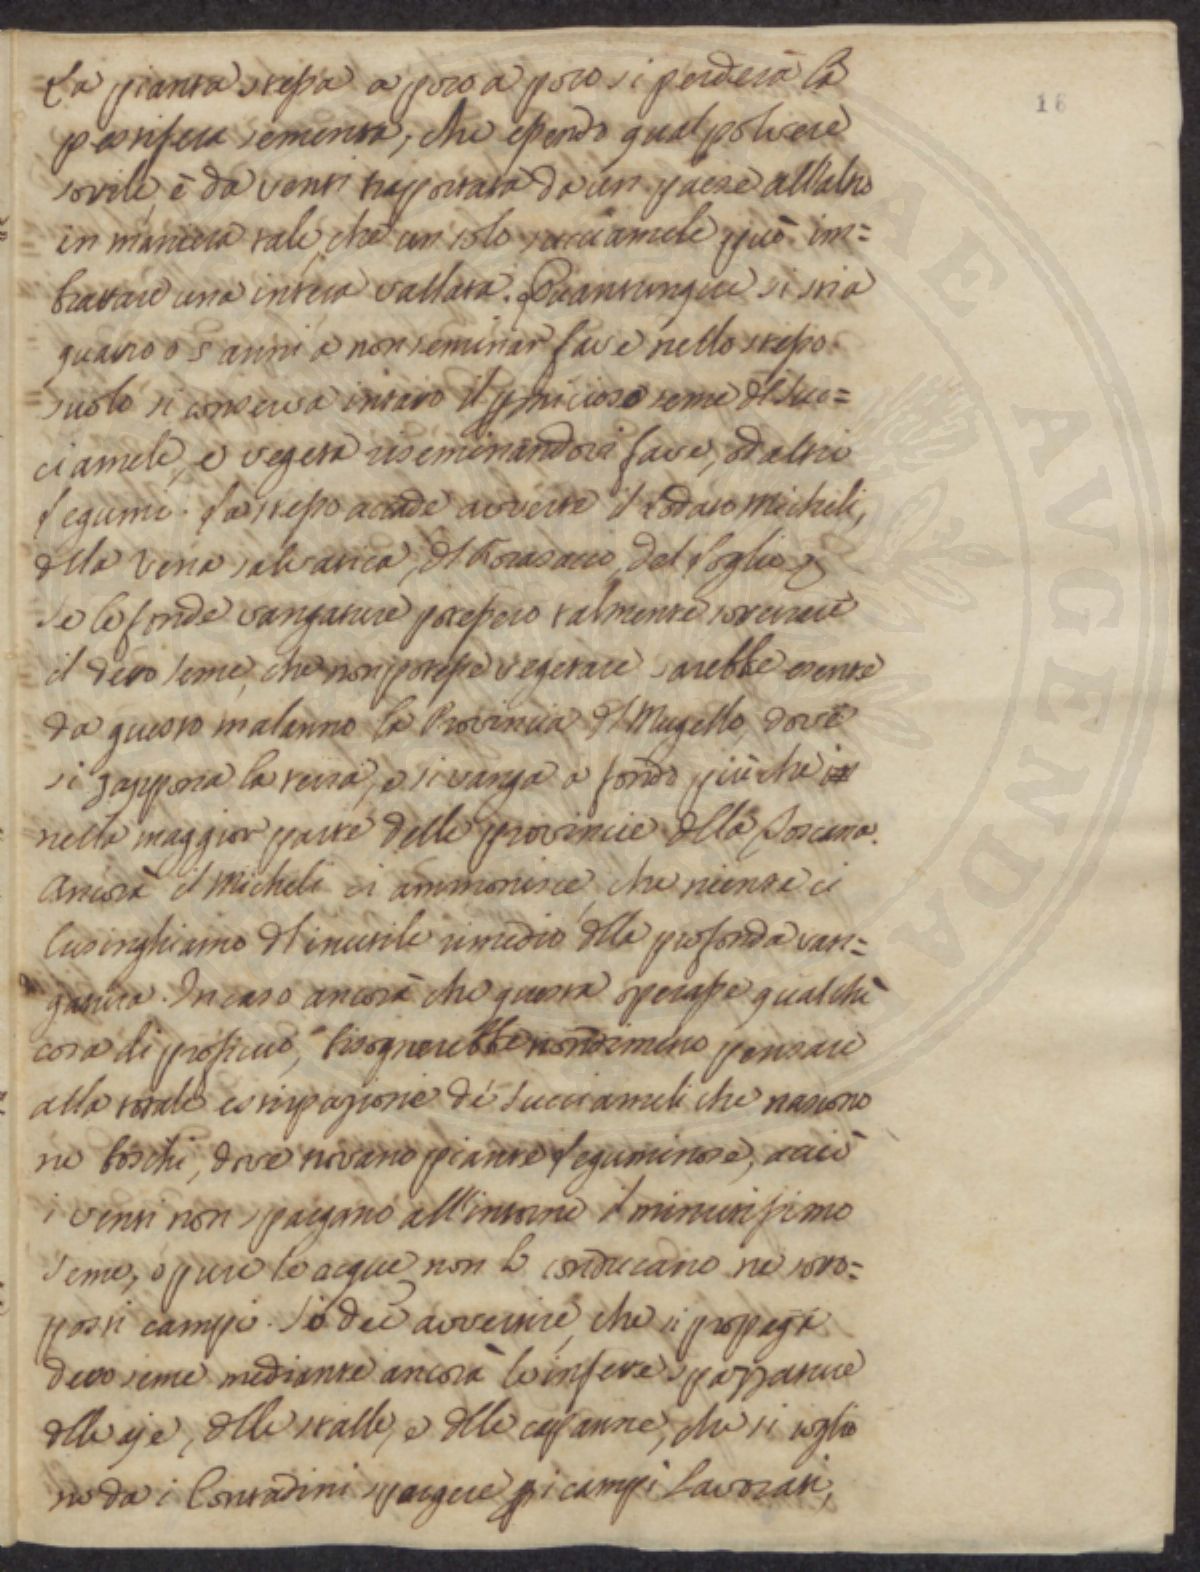 16
La pianta stessa a poco a poco si perderà la
pestifera sementa, che essendo qual polvere
sotile è da venti trapportata da un paese all'altro
in maniera tale che un solo succiamele può im=
brattare una intera vallata. Quantunque si stia
quatro o 5 anni a non seminar fave nello stesso
suolo si conserva intatto il pernicioso seme dl suc=
ciamele, e vegeta riseminandosi fave, od altri
legumi. Lo stesso accade avverte il lodato Micheli,
dlla Vena salvatica, dl forasacco, del loglio &
Se le fonde vangature potessero talmente soterrare
il detto seme, che non potesse vegetare sarebbe esente
da questo malanno la Provincia dl Mugello, dove
si zappona la terra, e si vanga a fondo più che
nella maggior parte delle provincie dlla Toscana.
Ancora il Micheli ci ammonisce, che niente ci
lusinghiamo dl inutile rimedio dlla profonda van=
gatura. In caso ancora che questa operasse qualche
cosa di proficuo, bisognerebbe nondimeno pensare
alla totale estirpazione de succiameli che nascono
ne boschi, dove trovano piante leguminose, acciò
i venti non spargano all'intorno il minutissimo
seme, o pure le acque non lo conducano ne soto=
posti campi. Si deè avvertire, che si propaga
detto seme mediante ancora le infette spazzature
dlle aje, dlle stalle, e dlle capanne, che si soglio
no da i Contadini spargere pi campi lavorati,